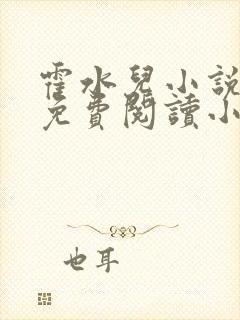 霍水兒小說
免費閱讀小
也耳